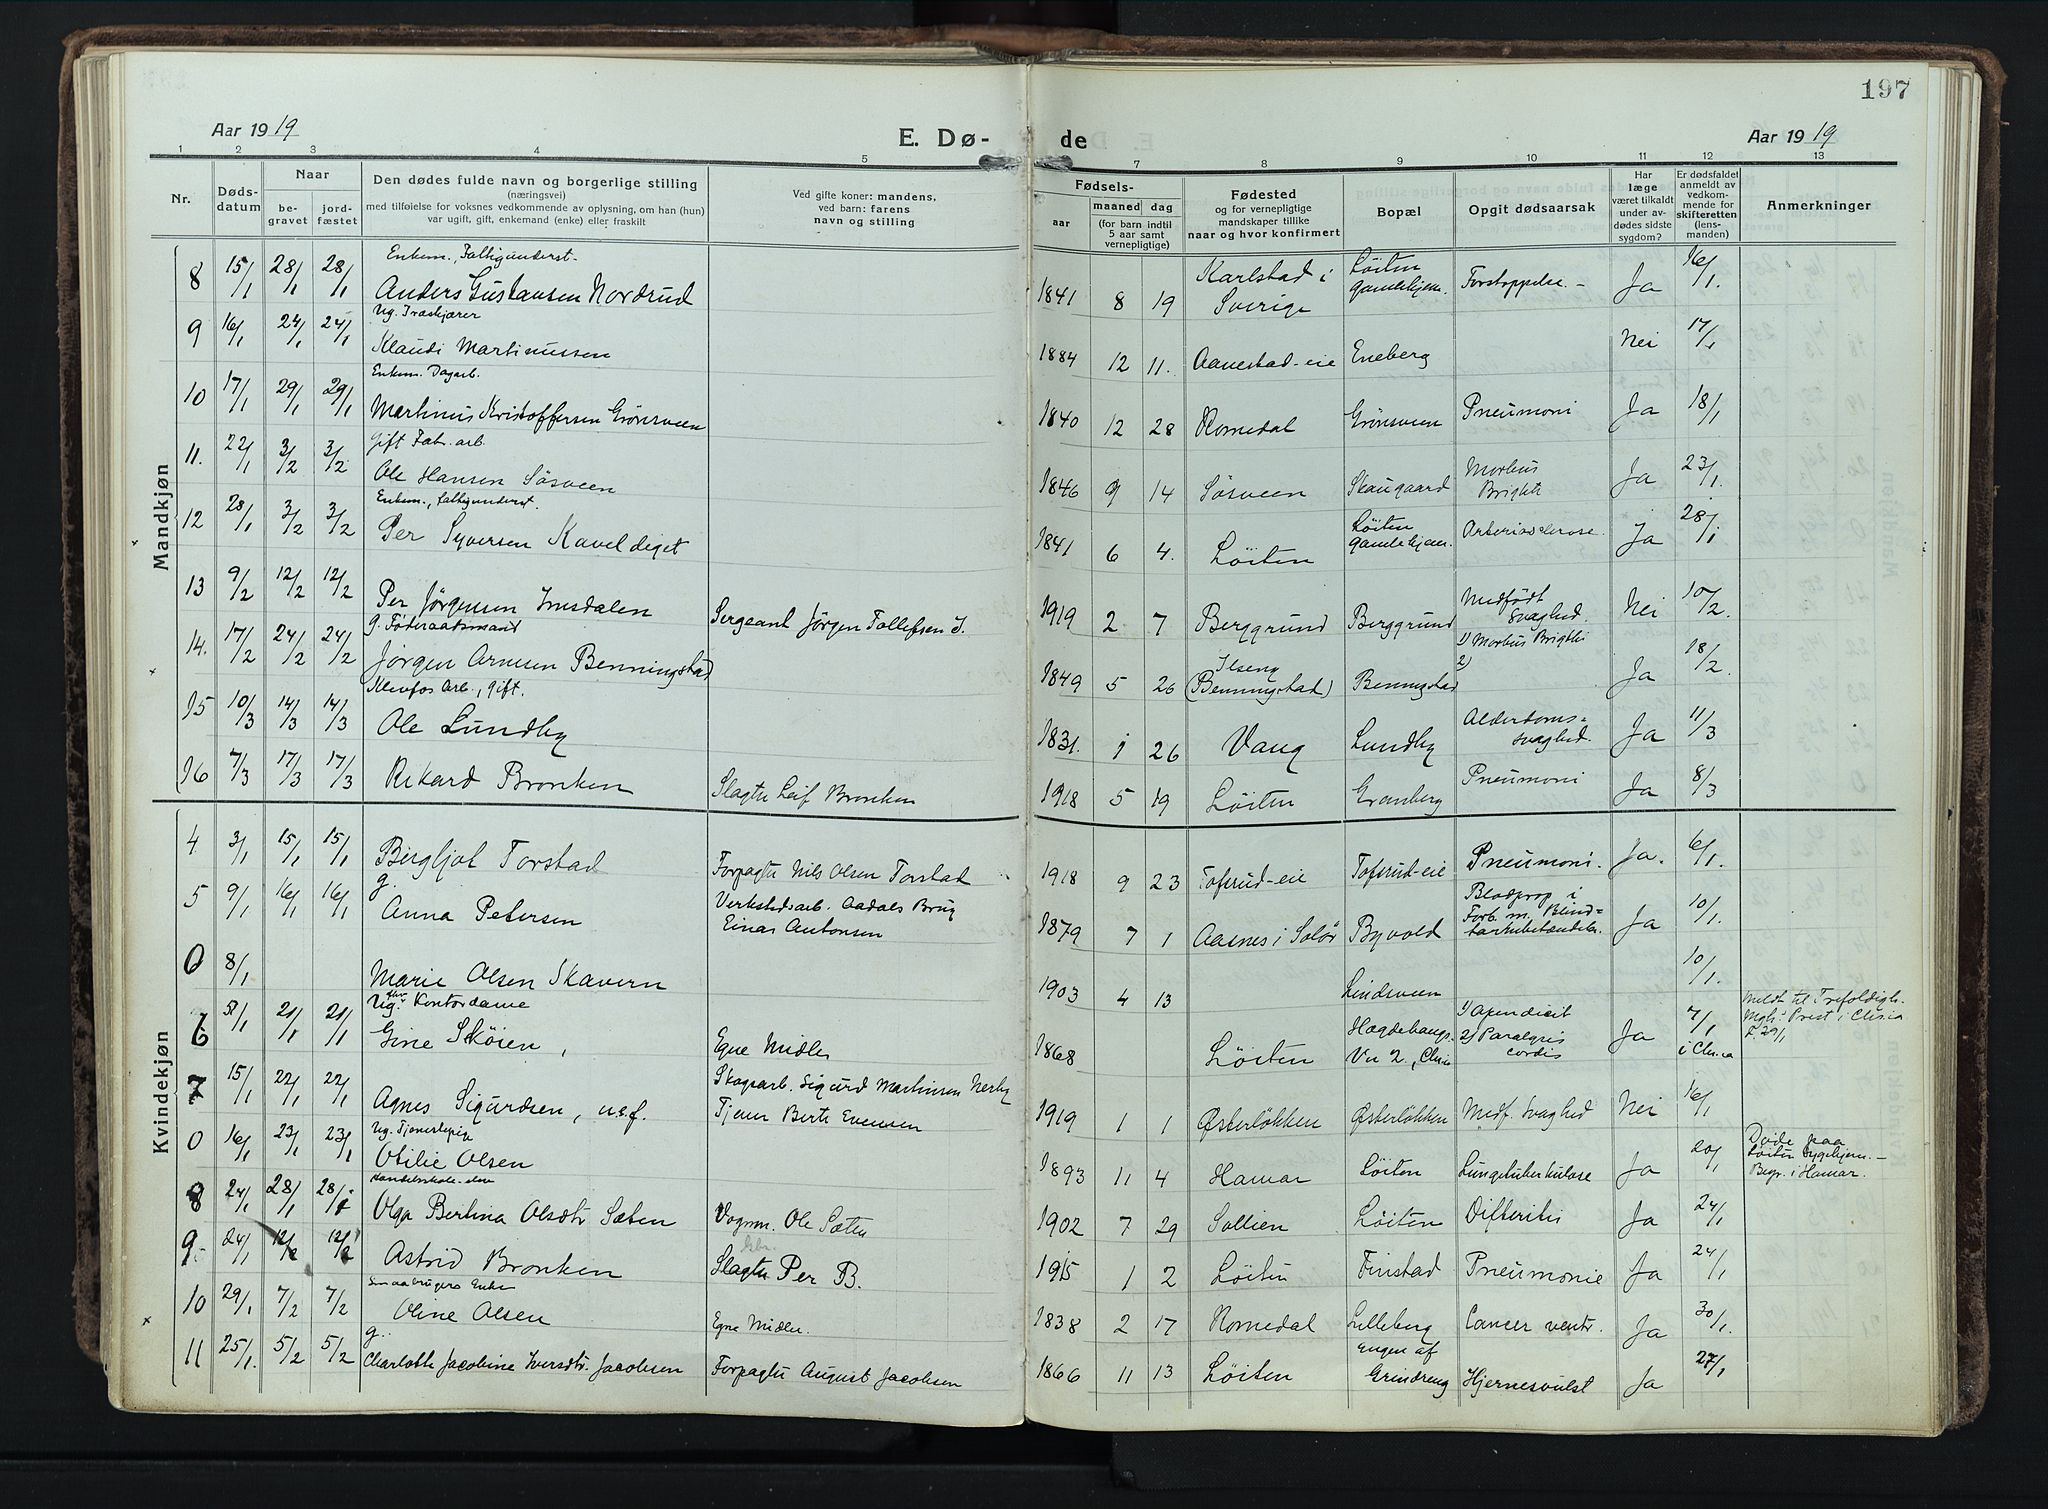 197
Aar 1919 E. Dø- de Aar 1919
1 2 3 4 5 7 8 9 10 11 12 13
Nr. Dødsdatum Naar begravet jordfæstet
Den dødes fulde navn og borgerlige stilling
(næringsvei)
med tilføielse for voksnes vedkommende av oplysning, om han (hun)
var ugift, gift, enkemand (enke) eller fraskilt
Ved gifte koner: mandens,
ved barn: farens
navn og stilling
Fødsels- aar maaned dag
(for barn indtil 5 aar samt vernepligtige)
Fødested
og for vernepligtige
mandskaper tillike
naar og hvor konfirmert
Bopæl
Opgit dødsaarsak
Har læge været tilkaldt under avdødes sidste sygdom?
Er dødsfaldet anmeldt av vedkommende for skifteretten (lensmanden)
Anmerkninger
Mandkjøn
8 15/1 28/1 28/1 Enkem., Fattigunderst. Anders Gustavsen Nordrud 1841 8 19 Karlstad i Sverige Løiten gamlehjem. Forstoppelse. – Ja 16/1.
9 16/1 24/1 24/1 Ug. Træskjærer Klaudi Martinussen 1884 12 11. Aanestad-eie Eneberg Nei 17/1
10 17/1 29/1 29/1 Enkem. Dagarb. Martinus Kristoffersen Grønsveen 1840 12 28 Romedal Grønsveen Pneumoni Ja 18/1
11. 22/1 3/2 3/2 Gift Fabr. arb. Ole Hansen Søsveen 1846 9 14 Søsveen Skaugaard Morbus Brightii Ja 23/1.
12 28/1 3/2 3/2 Enkem., fattigunderst. Per Syversen Kaveldiget 1841 6 4. Løiten Løiten gamlehjem. Arteriosclerose. Ja 28/1
13 9/2 12/2 12/2 Per Jørgensen Imsdalen Sergeant Jørgen Tollefsen I. 1919 2 7 Berggrund Berggrund Medfødt Svaghed. Nei 10/2.
14. 17/2 24/2 24/2 g. Føderaadsmand Jørgen Arnesen Benningstad 1849 5 26 Ilseng (Benningstad) Benningstad 1) Morbus Brigthi 2) Ja 18/2.
15 10/3 14/3 14/3 Klevfos Arb., gift. Ole Lundby 1831. 1 26 Vang Lundby Alderdoms= svaghed. Ja 11/3
16 7/3 17/3 17/3 Rikard Bronken Slagter Leif Bronken 1918 5 19 Løiten Granberg Pneumoni Ja 8/3
Kvindekjøn
4 3/1 15/1 15/1 Bergljot Torstad Forpagter Nils Olsen Torstad 1918 9 23 Tofsrud-eie Tofsrud-eie Pneumoni. Ja. 6/1.
5 9/1 16/1 16/1 g. Anna Petersen Verkstedsarb. Aadals Brug Einar Antonsen 1879 7 1 Aasnes i Solør Byvold Blodprop i Forb. m. Blind= tarmbetændelse. Ja 10/1.
0 8/1 Marie Olsen Skavern 1903 4 13 Lindsveen 10/1.
6 5/1 21/1 21/1 Ug. fhv. Kontordame Gine Skøien, Egne Midler 1868 Løiten Hægdehaugs. Vn 2., Chria 1) Apendicit 2) Paralysis cordis Ja 7/1 i Chr.ia Meldt til Trefoldigh. Mgh. Prest i Chr.ia 29/1
7 15/1 22/1 22/1 Agnes Sigurdsen, u.e.f. Skogsarb. Sigurd Martinsen Nerby Tjener Berte Evensen 1919 1 1 Østerløkken Østerløkken Medf. Svaghed Nei 16/1
0 16/1 23/1 23/1 Ug. Tjenestepige Otilie Olsen 1893 11 4 Hamar Løiten Lungetuberkulose Ja 20/1 Døde paa Løiten Sygehjem. – Begr. i Hamar.
8 24/1 28/1 28/1 Handelsskole-elev Olga Bertina Olsdtr Sæten Vognm. Ole Sæten 1902 7 29 Sollien Løiten Difteritis Ja 24/1
9. 24/1 12/2 12/2 Astrid Bronken Slagter Per B. 1915 1 2 Løiten Finstad Pneumonie Ja 24/1
10 29/1 7/2 7/2 Smaabrugers Enke Oline Olsen Egne Midler. 1838 2 17 Romedal Lilleberg Cancer ventr. Ja 30/1.
11 25/1. 5/2 5/2 g. Charlotte Jacobine Iversdtr. Jacobsen Forpagter August Jacobsen 1866 11 13 Løiten Engen af Grindreng Hjernesvulst Ja 27/1